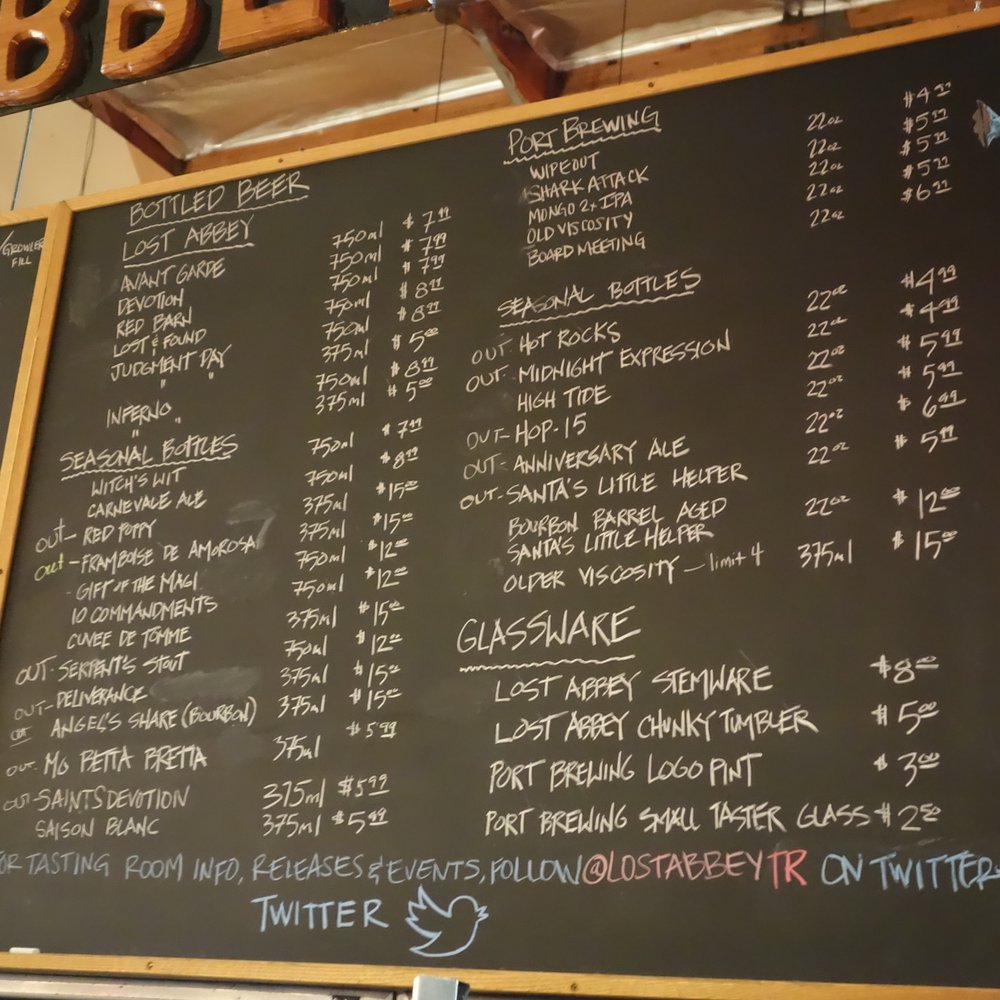 GROWLER
FILL
BOTTLED BEER
LOST ABBEY
AVANT GARDE 750ml $7.99
DEVOTION 750ml $7.99
RED BARN 750ml $7.99
LOST & FOUND 750ml $8.99
JUDGMENT DAY 750ml $8.99
" " 375ml $5.00
INFERNO 750ml $8.99
" " 375ml $5.00
SEASONAL BOTTLES
WITCH'S WIT 750ml $7.99
CARNEVALE ALE 750ml $8.99
OUT- RED POPPY 375ml $15.00
OUT- FRAMBOISE DE AMOROSA 375ml $15.00
- GIFT OF THE MAGI 750ml $12.00
10 COMMANDMENTS 750ml $12.00
CUVEE DE TOMME 375ml $15.00
OUT- SERPENT'S STOUT 750ml $12.00
OUT- DELIVERANCE 375ml $15.00
OUT ANGEL'S SHARE (BOURBON) 375ml $15.00
OUT- MO BETTA BRETTA 375ml $5.99
OUT- SAINTS DEVOTION 375ml $5.99
SAISON BLANC 375ml $5.99
PORT BREWING
WIPEOUT 22oz $4.99
SHARK ATTACK 22oz $5.99
MONGO 2x IPA 22oz $5.99
OLD VISCOSITY 22oz $5.99
BOARD MEETING 22oz $6.99
SEASONAL BOTTLES
OUT- HOT ROCKS 22oz $4.99
OUT- MIDNIGHT EXPRESSION 22oz $4.99
HIGH TIDE 22oz $5.99
OUT- HOP-15 22oz $5.99
OUT- ANNIVERSARY ALE 22oz $6.99
OUT- SANTA'S LITTLE HELPER 22oz $5.99
BOURBON BARREL AGED
SANTA'S LITTLE HELPER 22oz $12.00
OLDER VISCOSITY - limit 4 375ml $15.00
GLASSWARE
LOST ABBEY STEMWARE $8.00
LOST ABBEY CHUNKY TUMBLER $5.00
PORT BREWING LOGO PINT $3.00
PORT BREWING SMALL TASTER GLASS $2.50
OR TASTING ROOM INFO, RELEASES & EVENTS, FOLLOW @LOSTABBEYTR ON TWITTER
TWITTER